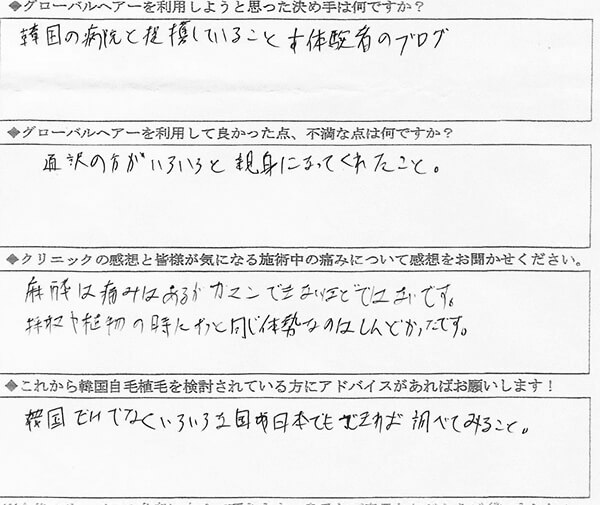 ◆グローバルヘアーを利用しようと思った決め手は何ですか？
韓国の病院と提携していること 体験者のブログ
◆グローバルヘアーを利用して良かった点、不満な点は何ですか？
通訳の方がいろいろと親身になってくれたこと。
◆クリニックの感想と皆様が気になる施術中の痛みについて感想をお聞かせください。
麻酔は痛みはあるがガマンできないほどではないです。
採取や植物の時にずっと同じ体勢なのはしんどかったです。
◆これから韓国自毛植毛を検討されている方にアドバイスがあればお願いします！
韓国だけでなくいろいろな国や日本でもできれば調べてみること。